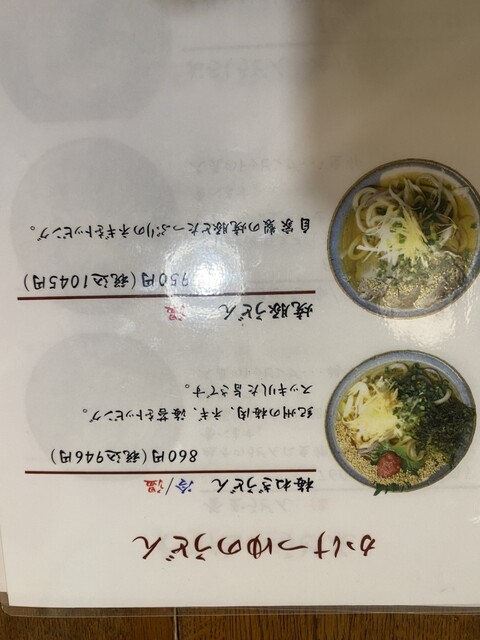 かけつゆのうどん
梅ねぎうどん 冷/温
860円(税込946円)
紀州の梅肉、ネギ、海苔をトッピング。
スッキリした旨さです。
焼豚うどん 温
950円(税込1045円)
自家製の焼豚とたっぷりのネギをトッピング。